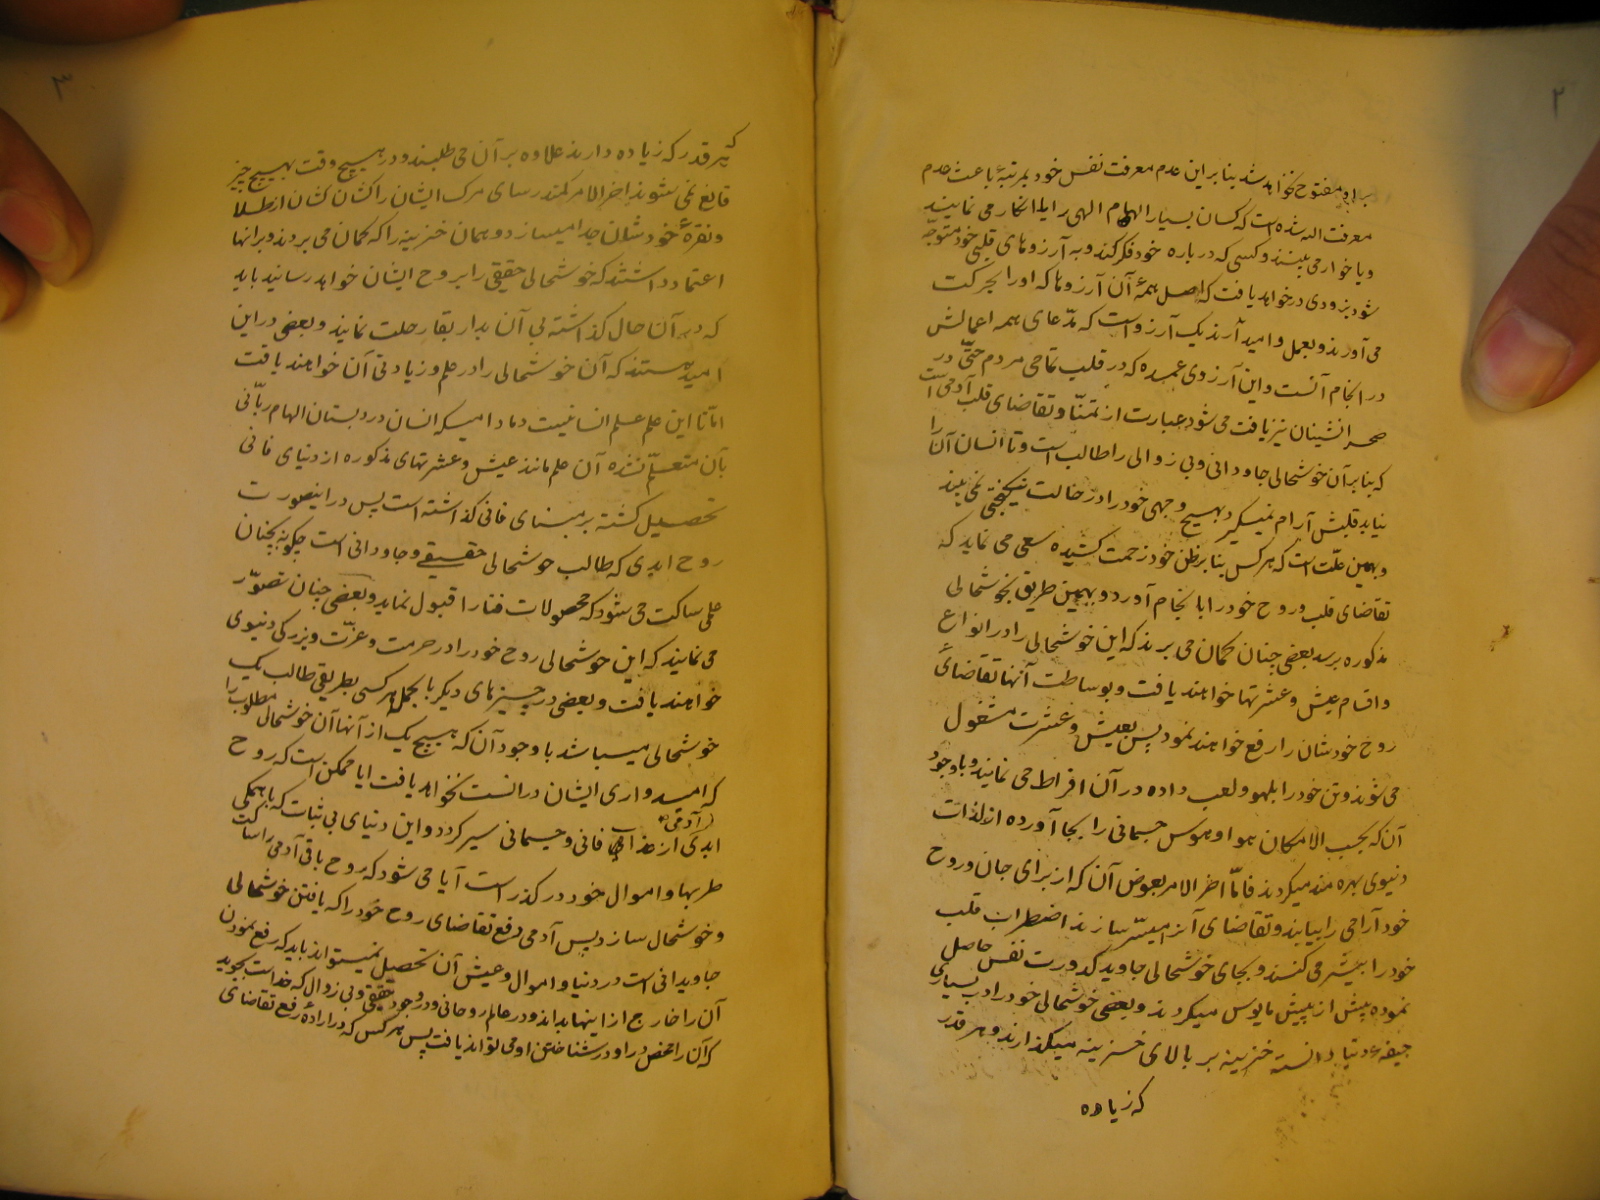 ۲
براو مفتوح نخواهد شد بنابراین عدم معرفت نفس خود بمرتبهٔ باعث عدم
معرفت اله شده است که کسان بسیار الهام الهی را انکار می نمایند
و یا خوار می بینند و کسی که درباره خود فکر کند و به آرزوهای قلبی خود متوجّه
شود بزودی درخواهد یافت که اصل همهٔ آن آرزوها که او را بحرکت
می آورند و بعمل و امید آرند یک آرزو است که مدّعای همه اعمالش
در انجام آنست و این آرزوی عمده که در قلب تمامی مردم حتّی در
صحرانشینان نیز یافت می شود عبارت از تمنّا و تقاضای قلب آدمی است
که بنا بر آن خوشحالی جاودانی و بی زوالی را طالب است و تا انسان آن را
نیابد قلبش آرام نمیگیرد بهیچ وجهی خود را در حالت نیکبختی نمی بیند
و بهمین علّت است که هر کس بنا بر ظن خود زحمت کشیده سعی می نماید که
تقاضای قلب و روح خود را با نجام آورد و بهمین طریق بخوشحالی
مذکوره برسد بعضی چنان گمان می برند که این خوشحالی را در انواع
و اقسام عیش و عشرتها خواهند یافت و بوساطت آنها تقاضای
روح خودشان را رفع خواهند نمود پس بعیش و عشرت مشغول
می شوند و تن خود را بلهو و لعب داده در آن افراط می نمایند و با وجود
آن که بحسب الامکان هوا و هوس جسمانی را بجا آورده از لذات
دنیوی بهره مند میگردند فامّا اخر الامر بعوض آن که از برای جان و روح
خود آرامی را بیابند و تقاضای آنرا میسّر سازند اضطراب قلب
خود را بیشتر می کنند و بجای خوشحالی جاوید کدورت نفس حاصل
نموده بیش از پیش مایوس میگردند و بعضی خوشحالی خود را در بسیاری
جیفهٔ دنیا دانسته خزینه بر بالای خزینه میگذارند و هر قدر
که زیاده
۳
که زیاده دارند علاوه بر آن می طلبند و در هیچ وقت بهیچ چیز
قانع نمی شوند اخر الامر کمند رسای مرک ایشان را کشان کشان از طلا
و نقرهٔ خودشان جدا میسازد و همان خزینه را که گمان می بردند و بر آنها
اعتماد داشتند که خوشحالی حقیقی را بروح ایشان خواهد رسانید باید
که در آن حال گذاشته بی آن بدار بقا رحلت نمایند و بعضی در این
امید هستند که آن خوشحالی را در علم و زیادتی آن خواهند یافت
امّا تا این علم علم انسانیت و مادامیکه انسان در دبستان الهام ربّانی
بآن متعلّم نشده آن علم مانند عیش و عشرتهای مذکوره از دنیای فانی
تحصیل گشته بر مبنای فانی گذاشته است پس در اینصورت
روح ابدی که طالب خوشحالی حقیقی و جاودانی است چگونه بچنان
علمی ساکت می شود که محصولات فنا را قبول نماید و بعضی چنان تصوّر
می نمایند که این خوشحالی روح خود را در حرمت و عزّت و بزرگی دنیوی
خواهند یافت و بعضی در چیزهای دیگر بالجمله هر کسی بطریقی طالب یک
خوشحالی میباشد با وجود آن که هیچ یک از آنها آن خوشحال مطلوب را
که امیدواری ایشان در انست نخواهد یافت ایا ممکن است که روح
ابدی آدمی از فانی و جسمانی سیر گردد و این دنیای بی ثبات که با همگی
طربها و اموال خود در گذر است آیا می شود که روح باقی آدمی را ساکت
و خوشحال سازد پس آدمی رفع تقاضای روح خود را که یافتن خوشحالی
جاویدانی است در دنیا و اموال و عیش آن تحصیل نمیتواند باید که رفع نمودن
آن را خارج از اینها بداند و در عالم روحانی و در وجود حقیقی و بی زوال که خداست بجوید
که آن را محض در او و در شناختن او می تواند یافت پس هر کس که در ارادهٔ رفع تقاضای